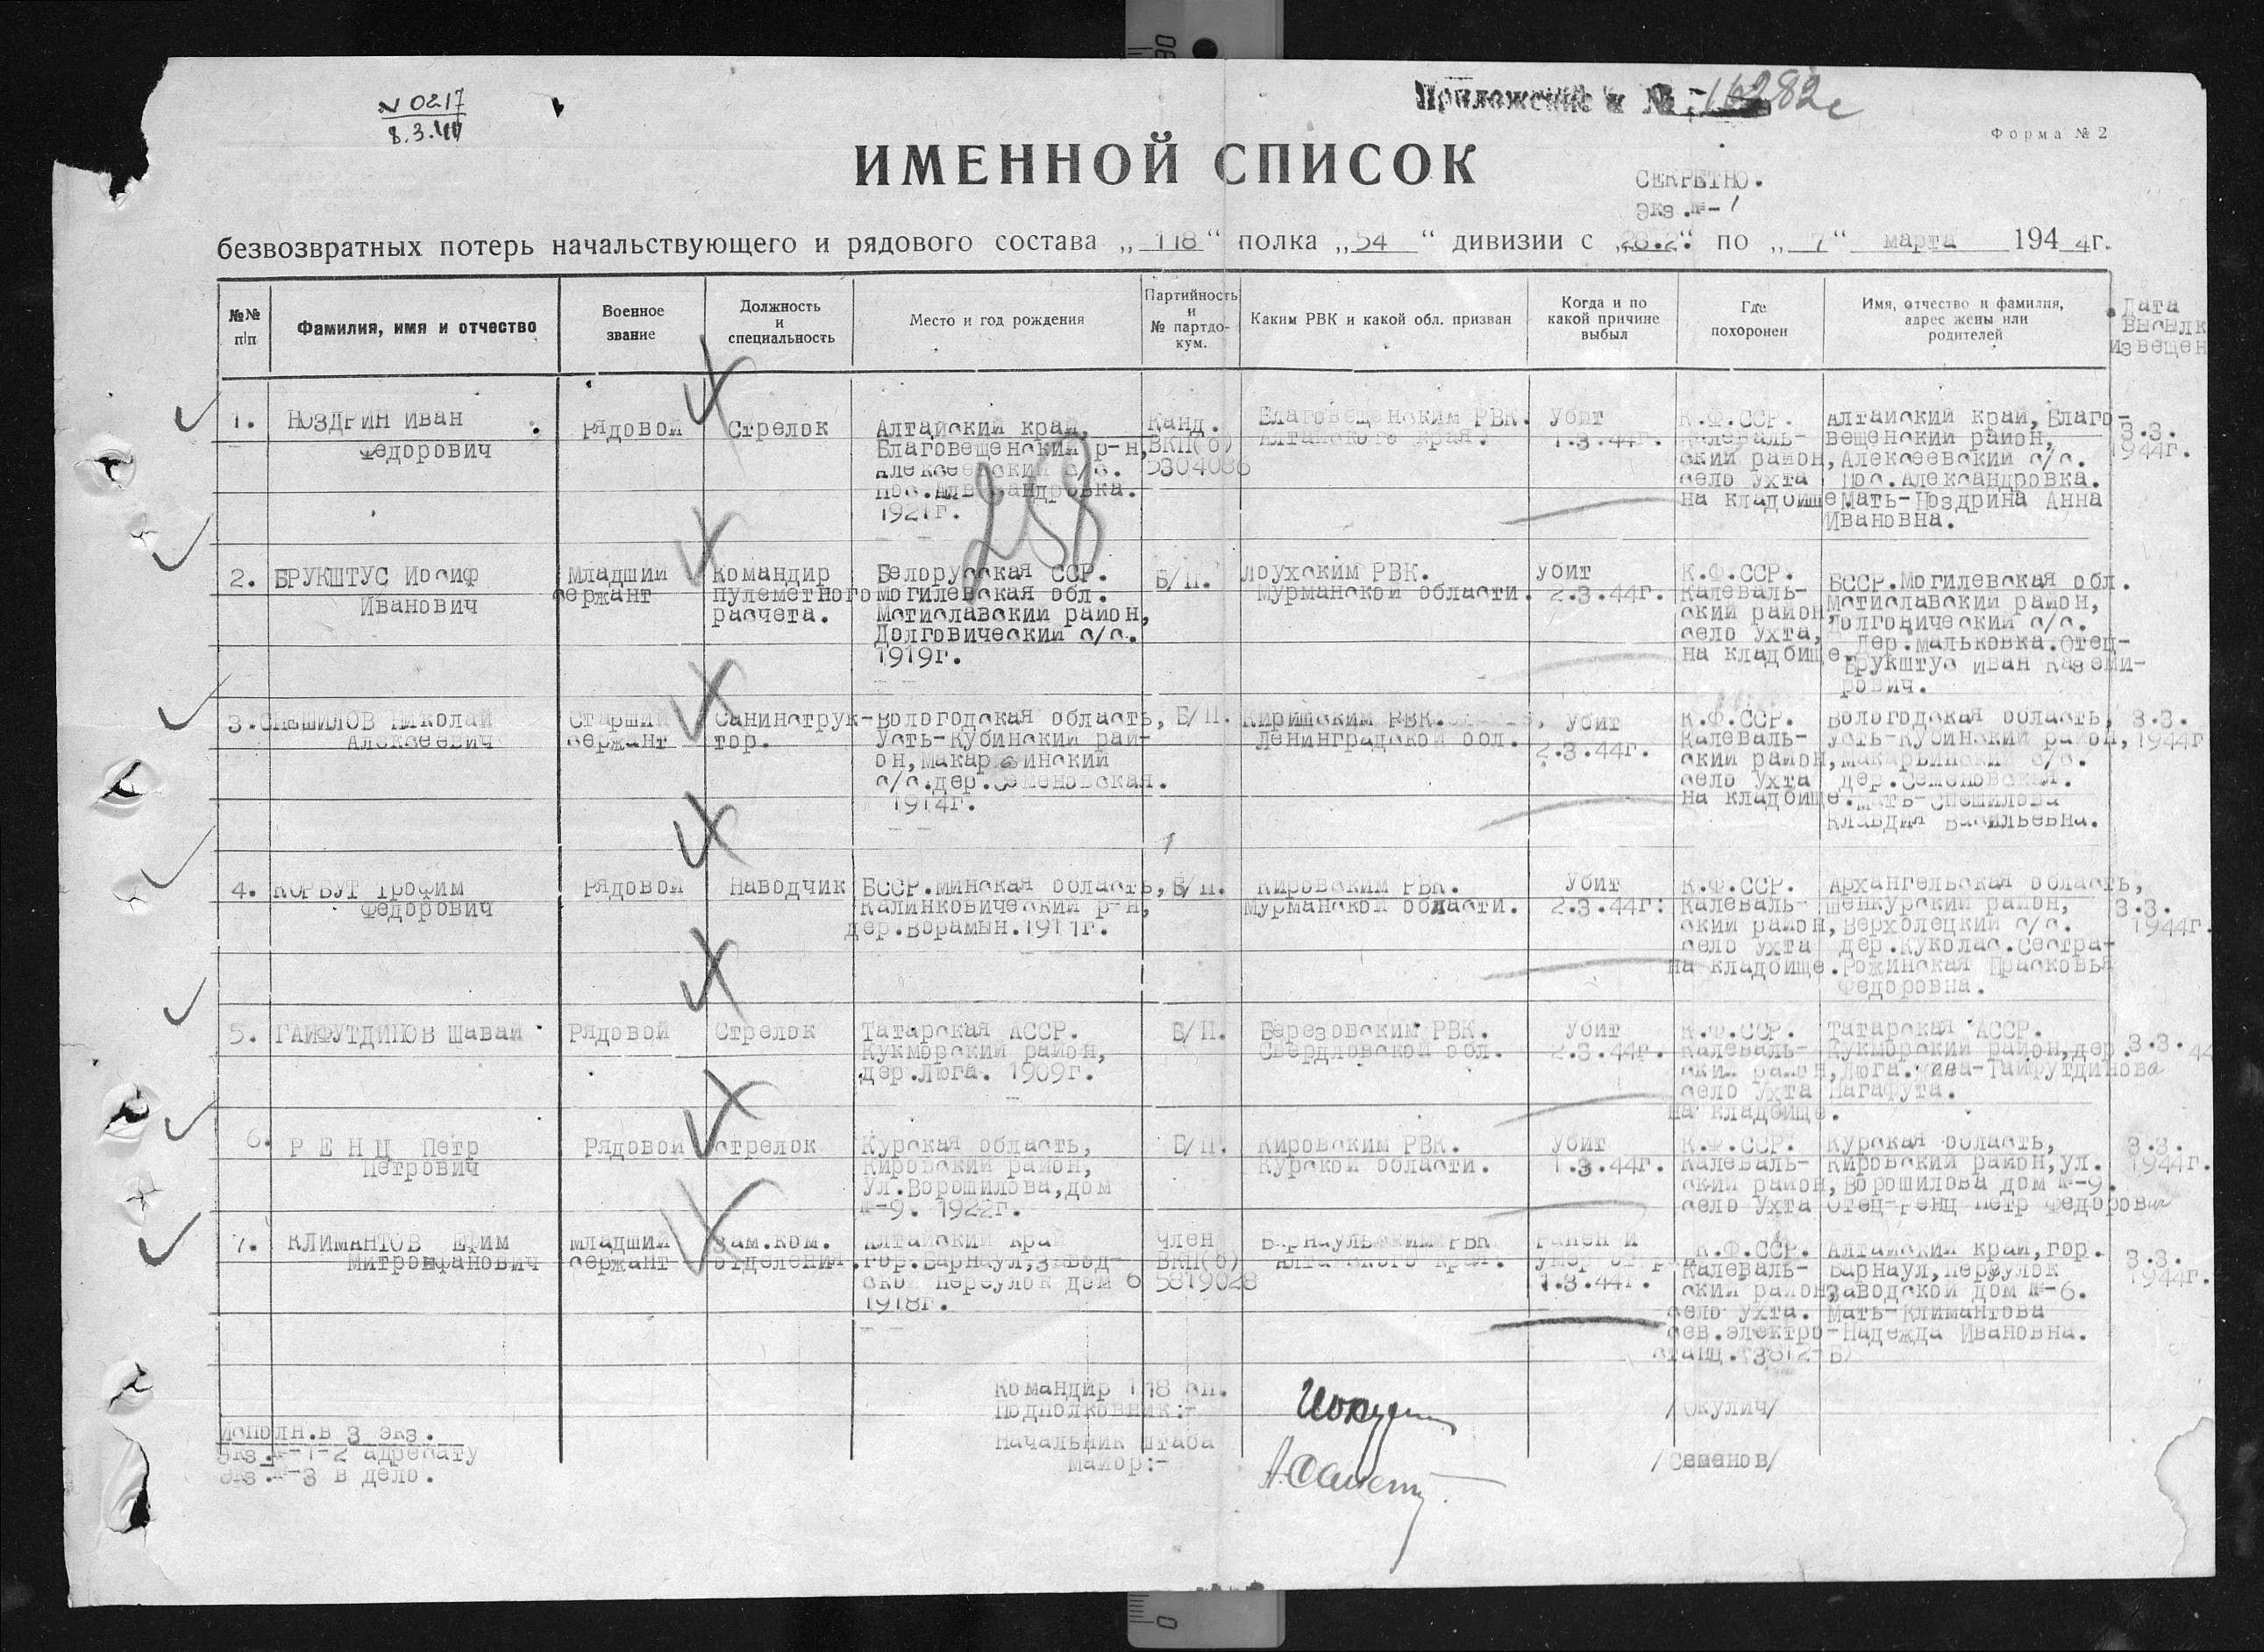 N 0217
8.3.44
Приложение к № 16282с
Форма № 2
ИМЕННОЙ СПИСОК
СЕКРЕТНО.
Экз.№-1
безвозвратных потерь начальствующего и рядового состава „118“ полка „54“ дивизии с „28.2“ по „7“ марта 1944г.
№№ п/п
Фамилия, имя и отчество
Военное звание
Должность и специальность
Место и год рождения
Партийность и № партдо-кум.
Каким РВК и какой обл. призван
Когда и по какой причине выбыл
Где похоронен
Имя, отчество и фамилия, адрес жены или родителей
Дата высылк извещен
1. НОЗДРИН Иван
Федорович
Рядовой
Стрелок
Алтайский край,
Благовещенский р-н,
Алексеевский с/с.
пос.Александровка.
1921г.
Канд.
ВКП(б)
5304086
Благовещенским РВК.
Алтайского края.
Убит
1.3.44г.
К.Ф.ССР.
Калеваль-
ский район,
село Ухта
на кладбище
Алтайский край,Благо-
вещенский район,
Алексеевский с/с.
Пос.Александровка.
Мать-Ноздрина Анна
Ивановна.
3.3.
1944г.
268
2. БРУКШТУС Иосиф
Иванович
Младший
сержант
Командир
пулеметного
расчета.
Белорусская ССР.
Могилевская обл.
Мстиславский район,
Долговический с/с.
1919г.
Б/П.
Лоухским РВК.
Мурманской области.
Убит
2.3.44г.
К.Ф.ССР.
Калеваль-
ский район,
село Ухта,
на кладбище.
БССР.Могилевская обл.
Мстиславский район,
Долговический с/с.
Дер.Мальковка.Отец-
Брукштус Иван Каземи-
рович.
3. СПЕШИЛОВ Николай
Алексеевич
Старший
сержант
Санинструк-
тор.
Вологодская область,
Усть-Кубинский рай-
он,Макарьинский
с/с.дер.Семеновская.
1914г.
Б/П.
Киришским РВК.
Ленинградской обл.
Убит
2.3.44г.
К.Ф.ССР.
Калеваль-
ский район,
село Ухта
на кладбище.
Вологодская область,
Усть-Кубинский район,
Макарьинский с/с.
дер.Семеновская.
Мать-Спешилова
Клавдия Васильевна.
3.3.
1944г
4. КОРБУТ Трофим
Федорович
Рядовой
Наводчик
БССР.Минская область,
Калинковический р-н,
дер.Ворамын.1911г.
Б/П.
Кировским РВК.
Мурманской области.
Убит
2.3.44г.
К.Ф.ССР.
Калеваль-
ский район,
село Ухта
на кладбище.
Архангельская область,
Шенкурский район,
Верхолецкий с/с.
дер.Куколас.Сестра-
Рожинская Прасковья
Федоровна.
3.3.
1944г.
5. ГАЙФУТДИНОВ Шавай
Рядовой
Стрелок
Татарская АССР.
Кукморский район,
дер.Люга. 1909г.
Б/П.
Березовским РВК.
Свердловской обл.
Убит
2.3.44г.
К.Ф.ССР.
Калеваль-
ский район,
село Ухта
на кладбище.
Татарская АССР.
Кукморский район,дер.
Люга.Жена-Гайфутдинова
Нагафута.
3.3.44
6. РЕНЦ Петр
Петрович
Рядовой
стрелок
Курская область,
Кировский район,
ул.Ворошилова,дом
№-9. 1922г.
Б/П.
Кировским РВК.
Курской области.
Убит
1.3.44г.
К.Ф.ССР.
Калеваль-
ский район,
село Ухта
Курская область,
Кировский район,ул.
Ворошилова дом №-9.
Отец-Ренц Петр Федорович
3.3.
1944г.
7. КЛИМАНТОВ Ефим
Митрофанович
Младший
сержант
Зам.ком.
отделения.
Алтайский край
гор.Барнаул,Завод-
ской переулок дом 6
1918г.
Член
ВКП(б)
5819028
Барнаульским РВК
Алтайского края.
Ранен и
умер от р-
1.3.44г.
К.Ф.ССР.
Калеваль-
ский район,
село Ухта.
сев.электро-
станц.(3812-Б)
Алтайский край,гор.
Барнаул,переулок
Заводской дом №-6.
Мать-Климантова
Надежда Ивановна.
3.3.
1944г.
Командир 118 сп.
Подполковник:-
/Окулич/
Начальник штаба
Майор:-
/Семенов/
Исполн.в 3 экз.
Экз.№-1-2 адресату
Экз.№-3 в дело.